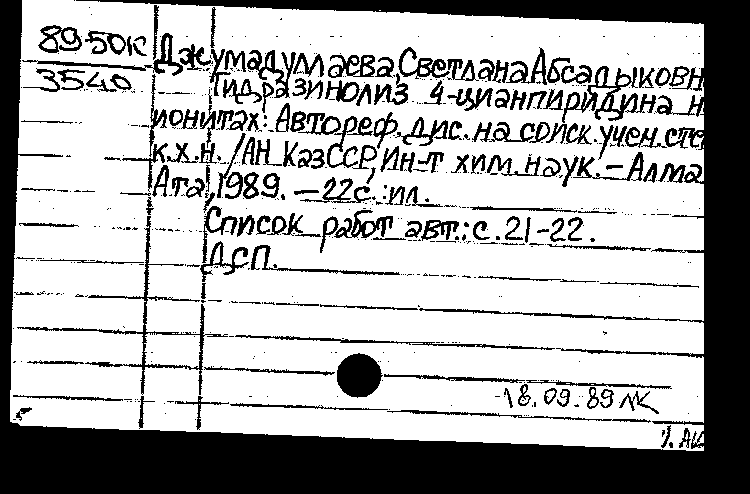 89-50К
3540
Джумадуллаева, Светлана Абсадыковн
Гидразинолиз 4-цианпиридина н
ионитах: Автореф. дис. на соиск. учен. сте
к.х.н. /АН КазССР, Ин-т хим. наук. – Алма
Ата, 1989. – 22с.: ил.
Список работ авт.: с. 21-22.
ДСП.
18.09.89